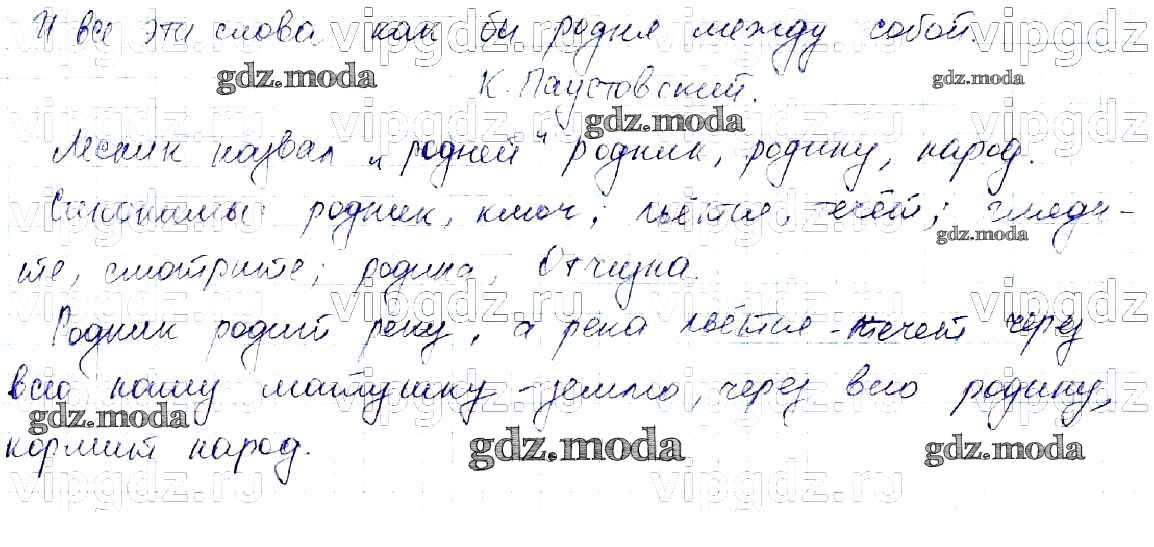 И все эти слова как бы родня между собой.
К. Паустовский.
Лесник назвал "родней" родник, родину, народ.
Синонимы: родник, ключ; льётся, течёт; гляди-
те, смотрите; родина, Отчизна.
Родник родит реку, а река льётся-течет через
всю нашу матушку-землю, через всю родину,
кормит народ.
gdz.moda
gdz.moda
gdz.moda
gdz.moda
gdz.moda
gdz.moda
gdz.moda
vipgdz.ru